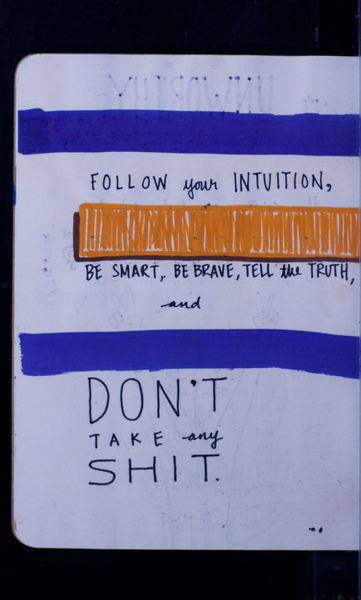 FOLLOW your INTUITION,
BE SMART, BE BRAVE, TELL the TRUTH,
and
DON'T
TAKE any
SHIT.